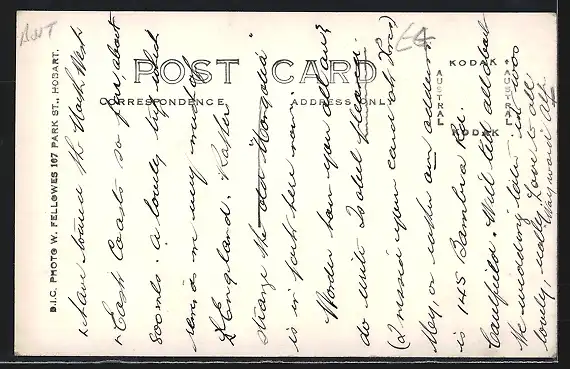 AUST
B.I.C. PHOTO W. FELLOWES 167 PARK ST., HOBART.
POST CARD
CORRESPONDENCE
ADDRESS ONLY
KODAK
AUSTRAL
AUSTRAL
KODAK
Have toured the North West
& East Coasts so far, about
800 mls. a lovely trip which
reminds me very much of
England. Rather
strange the old "Mongolia"
is in port here now.
Wonder how you all are?
do write Isobel please.
(I missed your card at Xmas)
My, or rather our address
is 145 Bambra Rd.
Caulfield. Will tell all about
the wedding later, it was
lovely, really. Love to all
Haywards All.